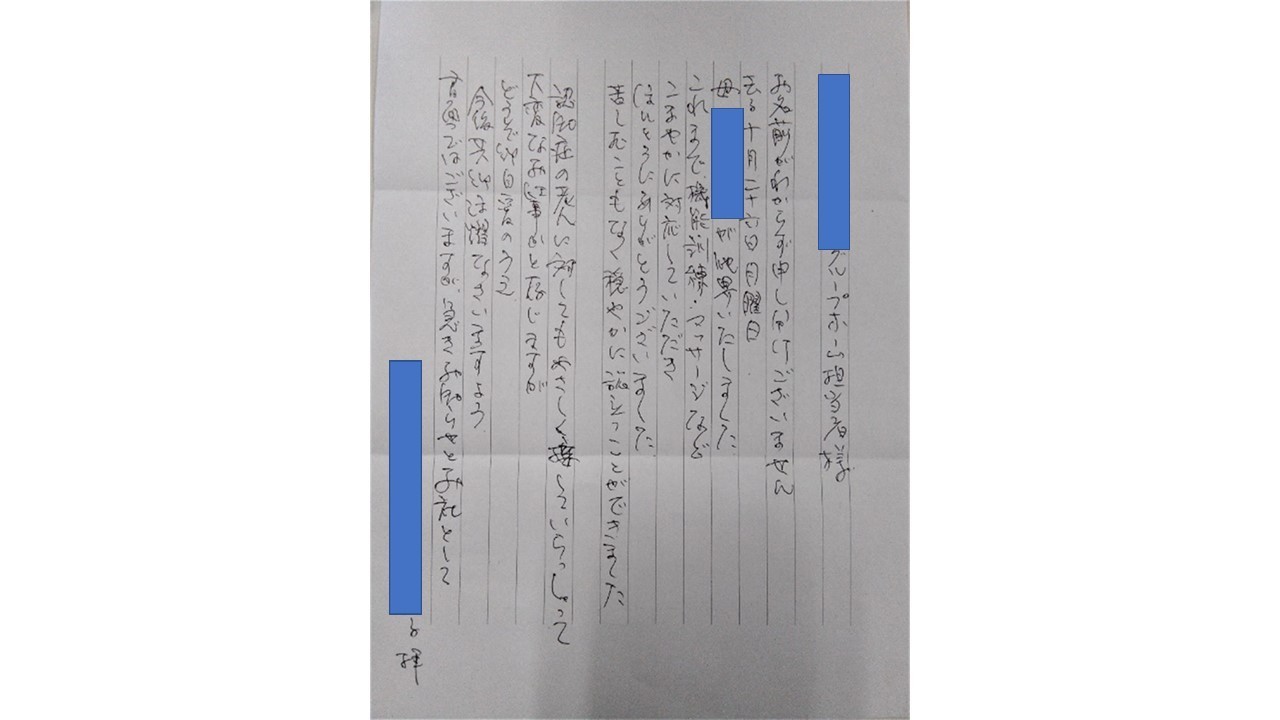 グループホーム担当者様
お名前がわからず申し分けございません
去る十月二十六日月曜日
母 が他界いたしました
これまで、機能訓練・マッサージなど
こまやかに対応していただき
ほんとうにありがとうございました
苦しむこともなく穏やかに旅立つことができました
認知症の老人に対してもやさしく接していらっしゃって
大変なお仕事かと存じますが
どうぞ御自愛のうえ
今後共御活躍なさいますよう
書面ではございますが急ぎお知らせと御礼として
拝